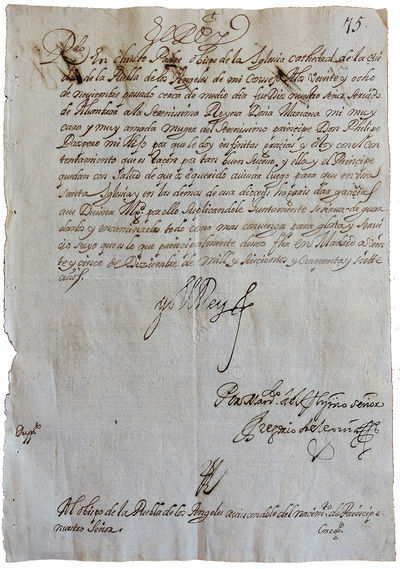 El Rey
75.
Rdo. En christo Padre obispo de la Iglesia cathedral de la ciu
dad de la Puebla de los Angeles de mi Consejo. A los veinte y ocho
de noviembre pasado cerca de medio dia fue Dios nuestro señor servido
de alumbrar a la Serenissima Reyna Doña Mariana mi muy
cara y muy amada muger del Serenissimo principe Don Phelipe
Prospero mi hijo por que le doy infinitas gracias y estoy con el Con
tentamiento que es raçon por tan buen suceso, y ella y el Principe
quedan con Salud de que he querido avisar luego para que en esa
santa Iglesia y en las demas de esa diocesi hagais dar gracias
a su Divina Magd. por ello Suplicandole Juntamente se sirva de guar
darlos y encaminarlo todo como mas convenga para gloria y servi
cio suyo que es lo que principalmente deseo fha en Madrid a Vein
te y cinco de Diziembre de mill y seiscientos y Cinquenta y siete
años.
yo El Rey
Por Mando. del Rey nro señor
Gregorio de Leguia
Dupdo.
Al obispo de la Puebla de los Angeles avisandole del nacimto. de Principe
nuestro Señor.